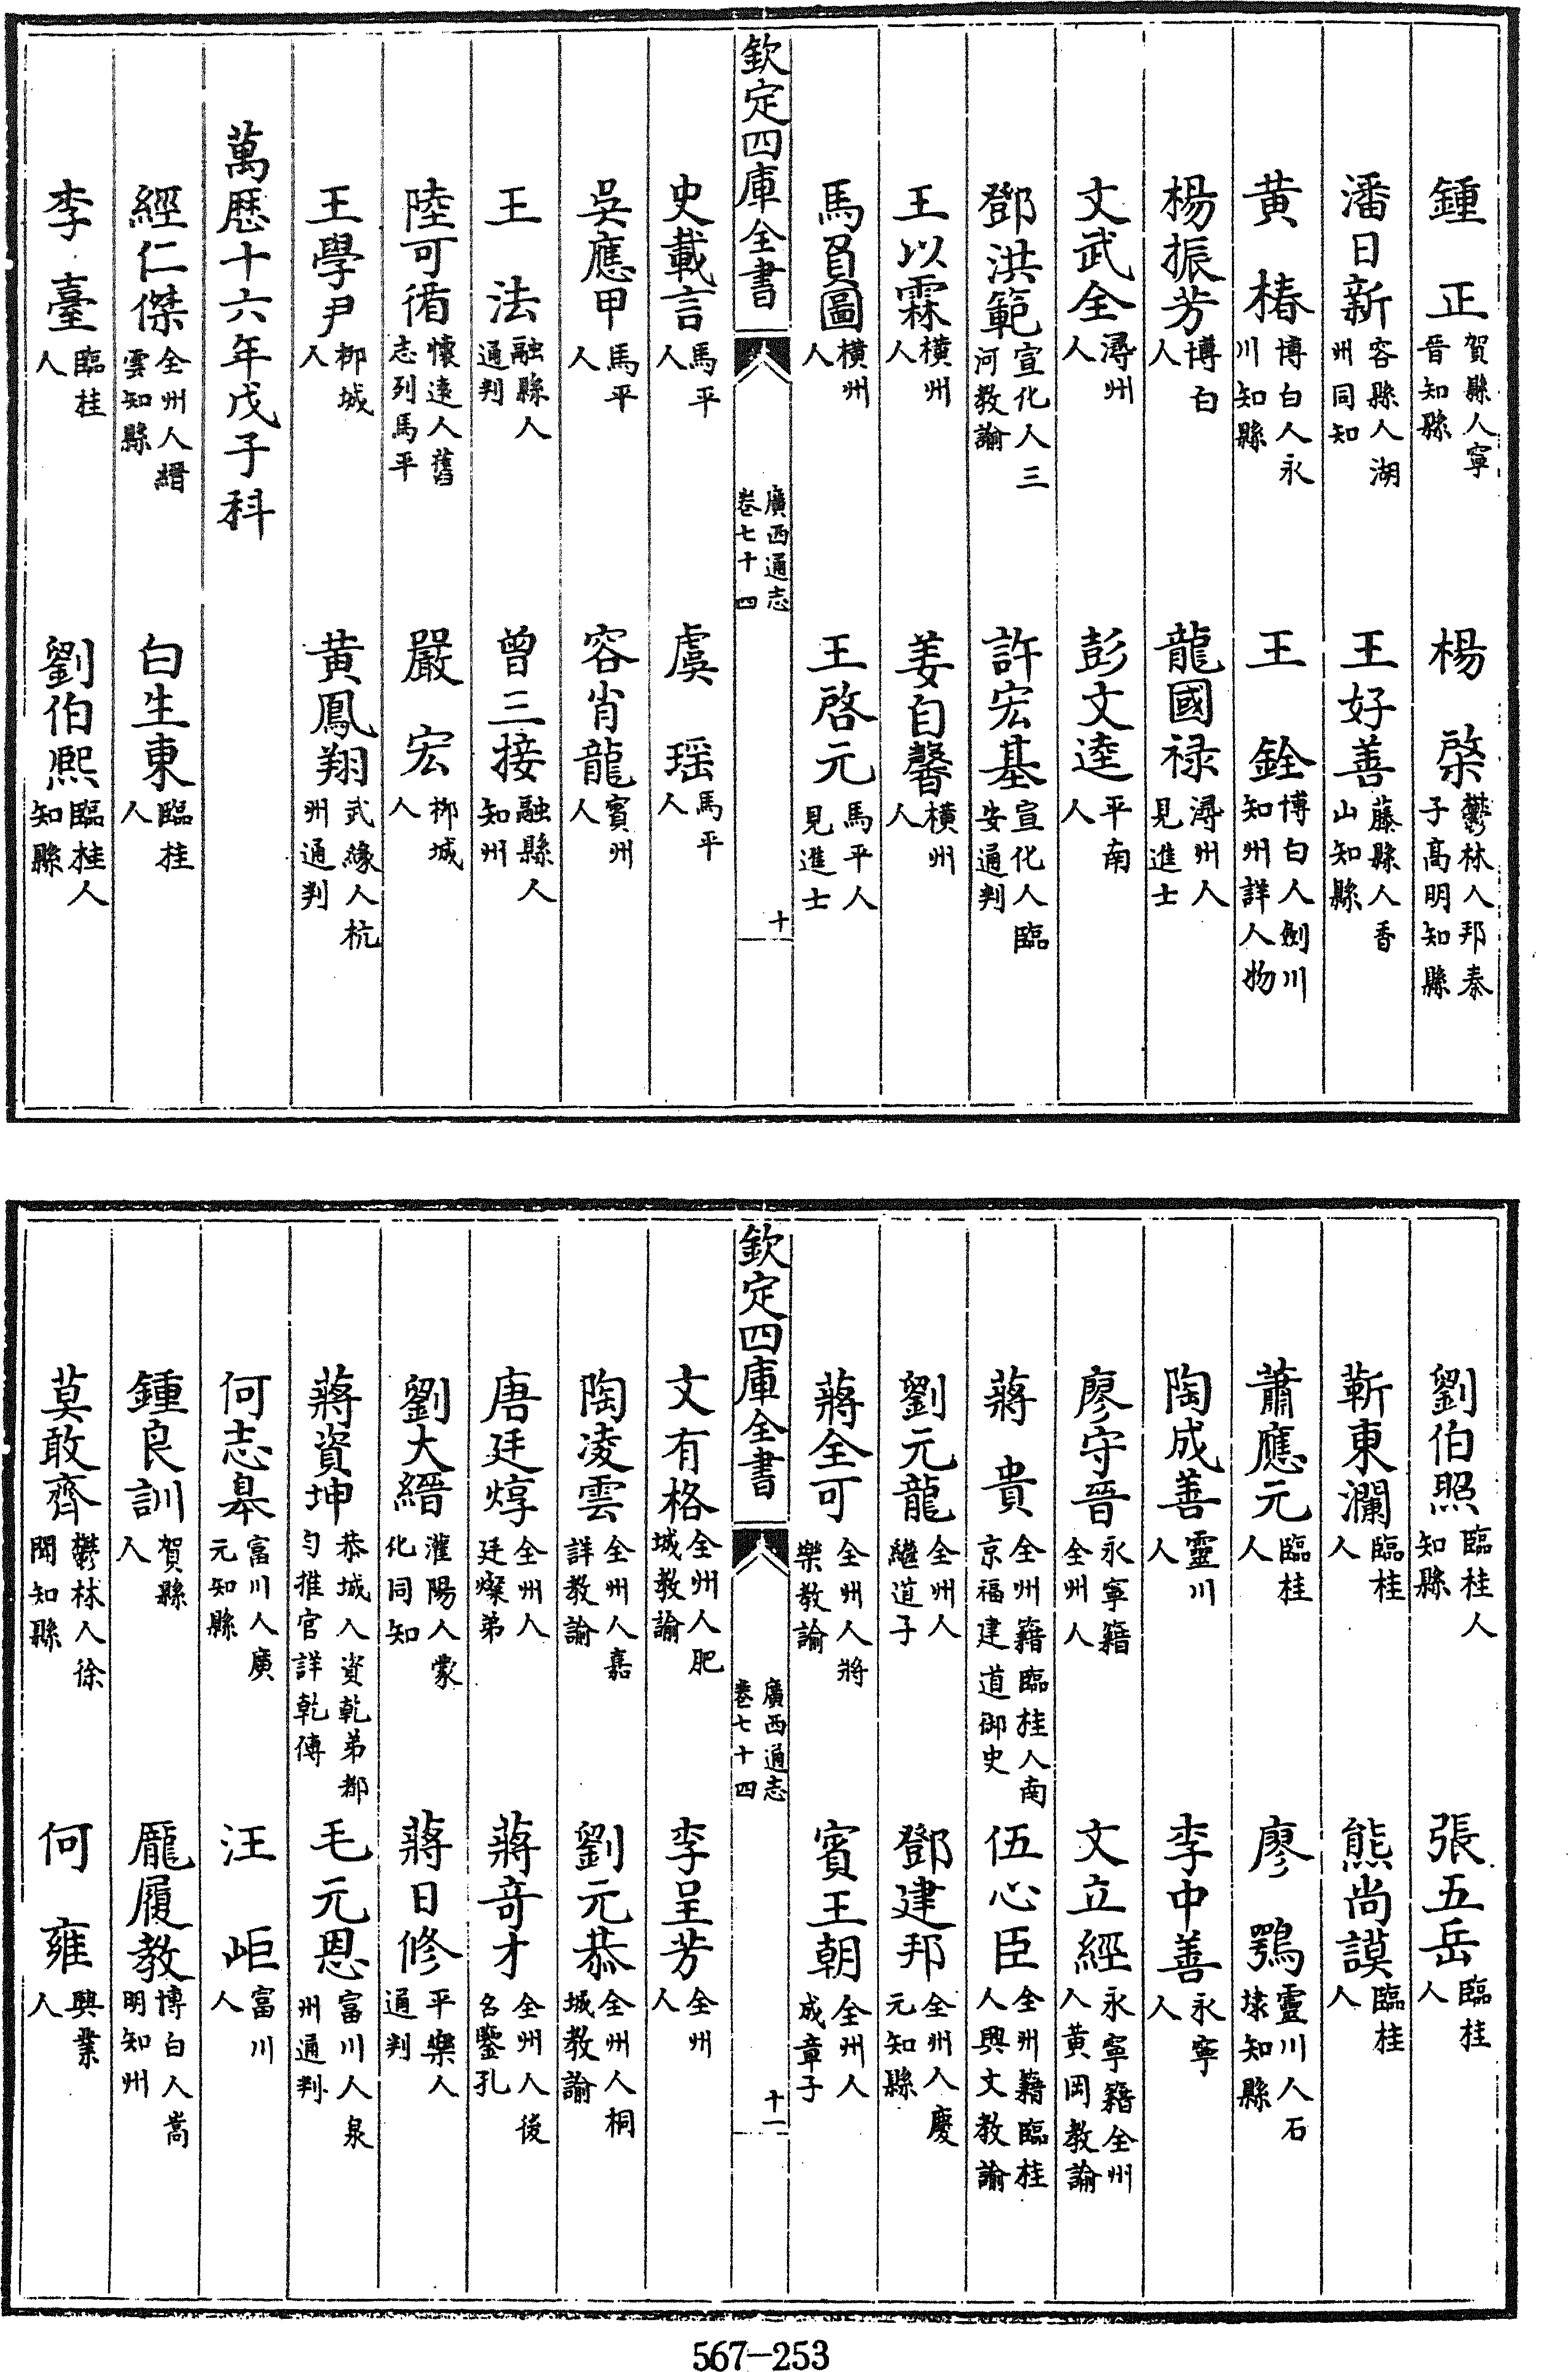 鍾正賀縣人寧晉知縣　楊棨鬱林人邦泰子高明知縣
潘日新容縣人湖州同知　王好善藤縣人香山知縣
黄椿博白人永川知縣　王銓博白人劍川知州詳人物
楊振芳博白人　龍國禄潯州人見進士
文武全潯州人　彭文逵平南人
鄧洪範宣化人三河教諭　許宏基宣化人臨安通判
王以霖横州人　姜自馨横州人
馬負圖横州人　王啓元馬平人見進士
欽定四庫全書　廣西通志卷七十四　十
史載言馬平人　虞瑶馬平人
吳應甲馬平人　容肖龍賓州人
王法融縣人通判　曾三接融縣人知州
陸可循懷遠人舊志列馬平　嚴宏柳城人
王學尹柳城人　黄鳳翔武緣人杭州通判
萬厯十六年戊子科
經仁傑全州人縉雲知縣　白生東臨桂人
李臺臨桂人　劉伯熙臨桂人知縣
劉伯照臨桂人知縣　張五岳臨桂人
靳東瀾臨桂人　熊尚謨臨桂人
蕭應元臨桂人　廖鶚靈川人石埭知縣
陶成善靈川人　李中善永寧人
廖守晉永寧籍全州人　文立經永寧籍全州人黄岡教諭
蔣貴全州籍臨桂人南京福建道御史　伍心臣全州籍臨桂人興文教諭
劉元龍全州人繼道子　鄧建邦全州人慶元知縣
蔣全可全州人將樂教諭　賓王朝全州人成章子
欽定四庫全書　廣西通志卷七十四　十一
文有格全州人肥城教諭　李呈芳全州人
陶凌雲全州人嘉詳教諭　劉元恭全州人桐城教諭
唐廷焞全州人廷燦弟　蔣竒才全州人後名鑒孔
劉大縉灌陽人蒙化同知　蔣日修平樂人通判
蔣資坤恭城人資乾弟都勻推官詳乾傳　毛元恩富川人泉州通判
何志皋富川人廣元知縣　汪岠富川人
鍾良訓賀縣人　龎履教博白人嵩明知州
莫敢齊鬱林人徐聞知縣　何雍興業人
567-253